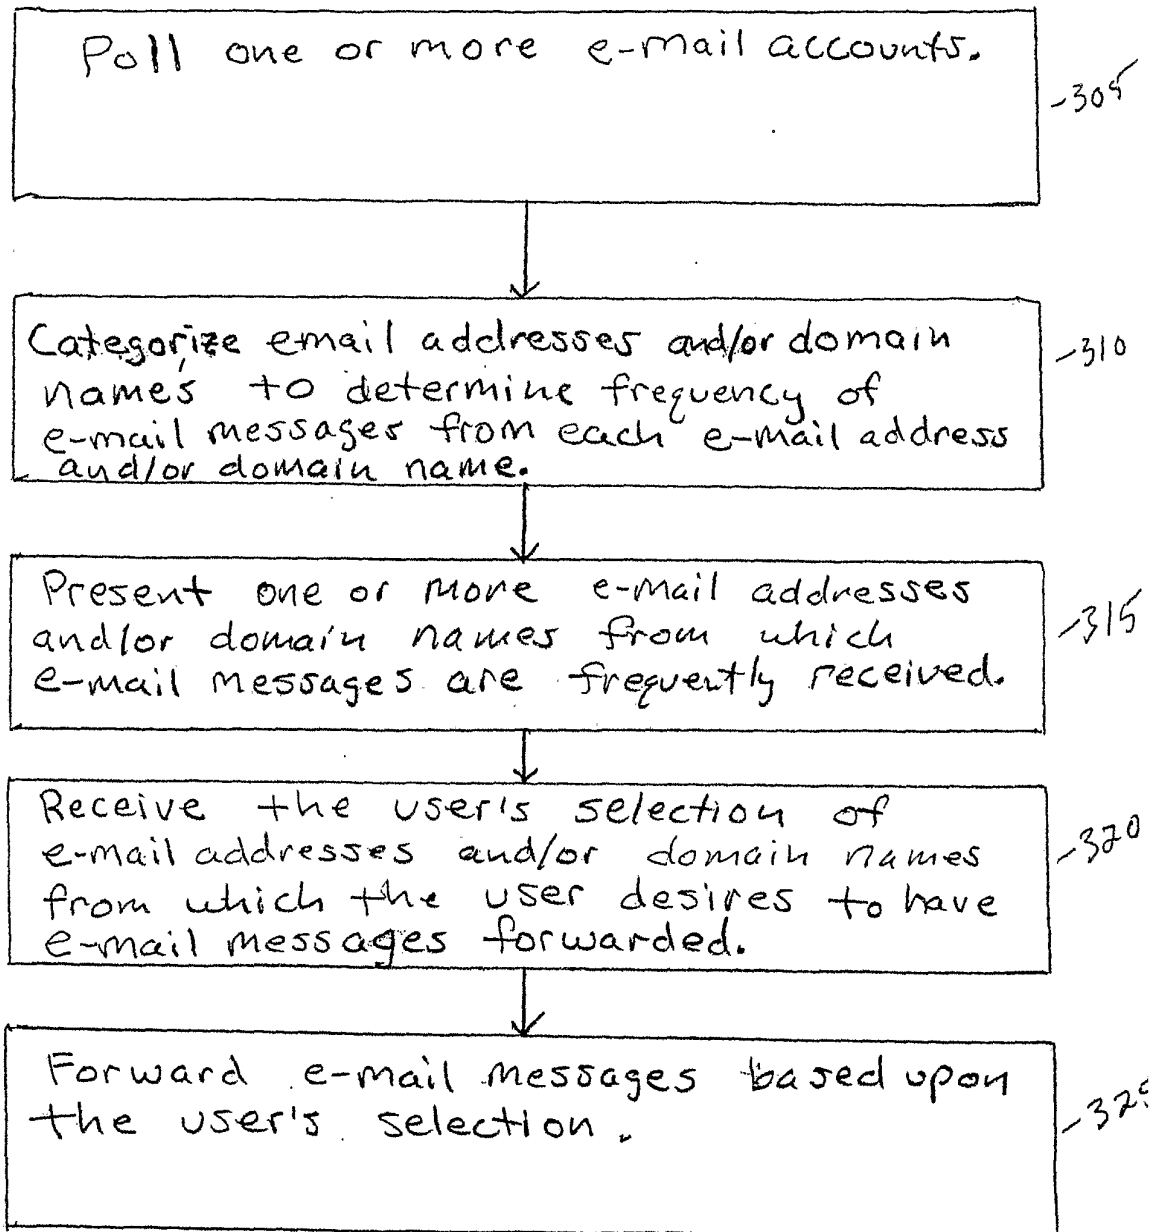 Poll one or more e-mail accounts.
-305
Categorize email addresses and/or domain
names to determine frequency of
e-mail messages from each e-mail address
and/or domain name.
-310
Present one or more e-mail addresses
and/or domain names from which
e-mail messages are frequently received.
-315
Receive the user's selection of
e-mail addresses and/or domain names
from which the user desires to have
e-mail messages forwarded.
-320
Forward e-mail messages based upon
the user's selection.
-325